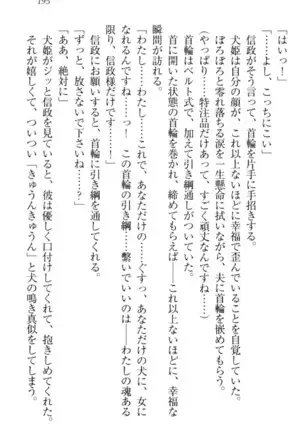 195
「はいっ！」
「……よし、こっちにこい」
信政がそう言って、首輪を片手に手招きする。
犬姫は自分の顔が、これ以上ないほどに幸福で歪んでいることを自覚していた。
ぼろぼろと零れ落ちる涙を一生懸命に拭いながら、夫に首輪を嵌めてもらう。
（やっぱり……特注品だけあって、すごく頑丈なんですね……）
首輪はベルト式で、加えて引き綱通しがついていた。
首に開いた状態の首輪を巻かれ、締めてもらえば――これ以上ないほどに、幸福な
瞬間が訪れる。
「わたし……わたし……これで、あなただけの……ぐすっ、あなただけの犬に、女に
なれるんですね……っ！　この首輪の引き綱……繋いでいいのは――わたしの魂ある
限り、信政様だけです……！」
信政にお願いすると、首輪に引き綱を通してくれる。
「ずっと、放さないで下さいね……っ？」
「ああ、絶対に」
犬姫がジッと信政を見ていると、彼は優しく口付けしてくれて、抱きしめてくれた。
それが嬉しくて、ついつい「きゅうんきゅうん」と犬の鳴き真似をしてしまう。